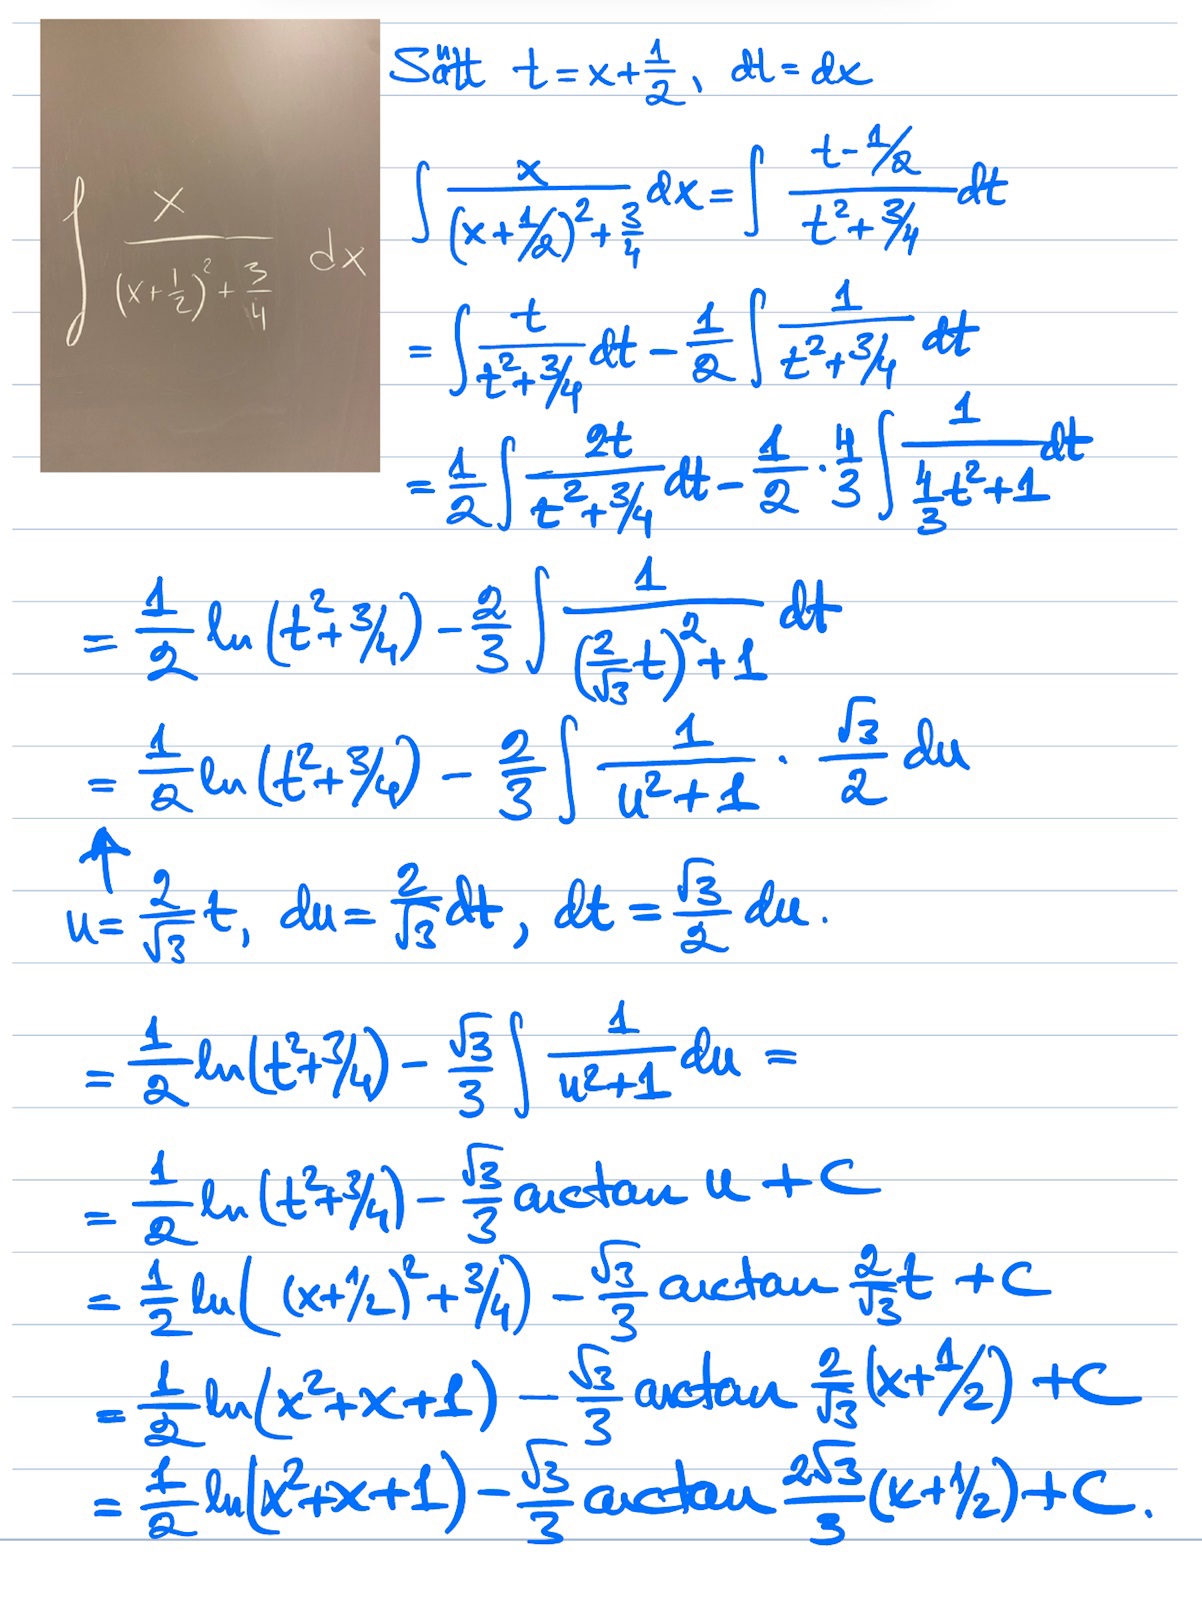 ∫ x / ((x+1/2)² + 3/4) dx
Sätt t = x + 1/2, dt = dx
∫ x / ((x+1/2)² + 3/4) dx = ∫ (t - 1/2) / (t² + 3/4) dt
= ∫ t / (t² + 3/4) dt - 1/2 ∫ 1 / (t² + 3/4) dt
= 1/2 ∫ 2t / (t² + 3/4) dt - 1/2 · 4/3 ∫ 1 / (4/3 t² + 1) dt
= 1/2 ln (t² + 3/4) - 2/3 ∫ 1 / ((2/√3 t)² + 1) dt
= 1/2 ln (t² + 3/4) - 2/3 ∫ 1 / (u² + 1) · √3/2 du
↑
u = 2/√3 t, du = 2/√3 dt, dt = √3/2 du.
= 1/2 ln (t² + 3/4) - √3/3 ∫ 1 / (u² + 1) du =
= 1/2 ln (t² + 3/4) - √3/3 arctan u + C
= 1/2 ln ((x+1/2)² + 3/4) - √3/3 arctan 2/√3 t + C
= 1/2 ln (x² + x + 1) - √3/3 arctan 2/√3 (x+1/2) + C
= 1/2 ln (x² + x + 1) - √3/3 arctan 2√3/3 (x+1/2) + C.